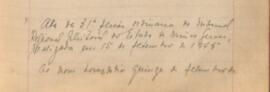 Ata da 31ª sessão ordinaria do Tribunal
Regional Eleitoral do Estado de Minas Geraes,
realizada em 15 de fevereiro de 1946
Ao nono quinze de fevereiro de